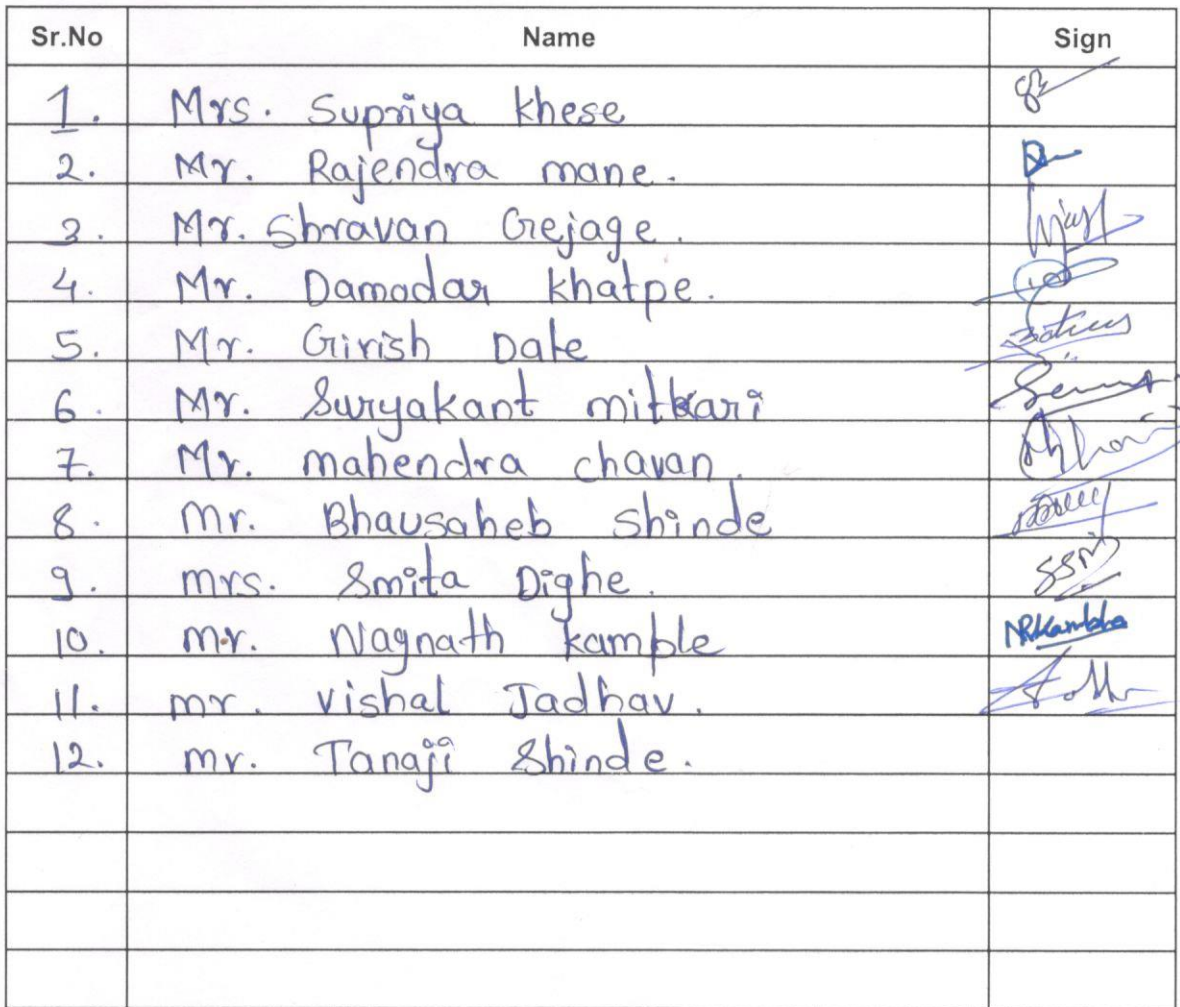 Sr.No Name Sign
1. Mrs. Supriya khese
2. Mr. Rajendra mane.
3. Mr. Shravan Gejage.
4. Mr. Damodar khatpe.
5. Mr. Girish Date
6. Mr. Suryakant mitkari
7. Mr. mahendra chavan.
8. mr. Bhausaheb shinde
9. mrs. Smita Dighe.
10. mr. Nagnath kamble NRKamble
11. mr. vishal Jadhav.
12. mr. Tanaji Shinde.